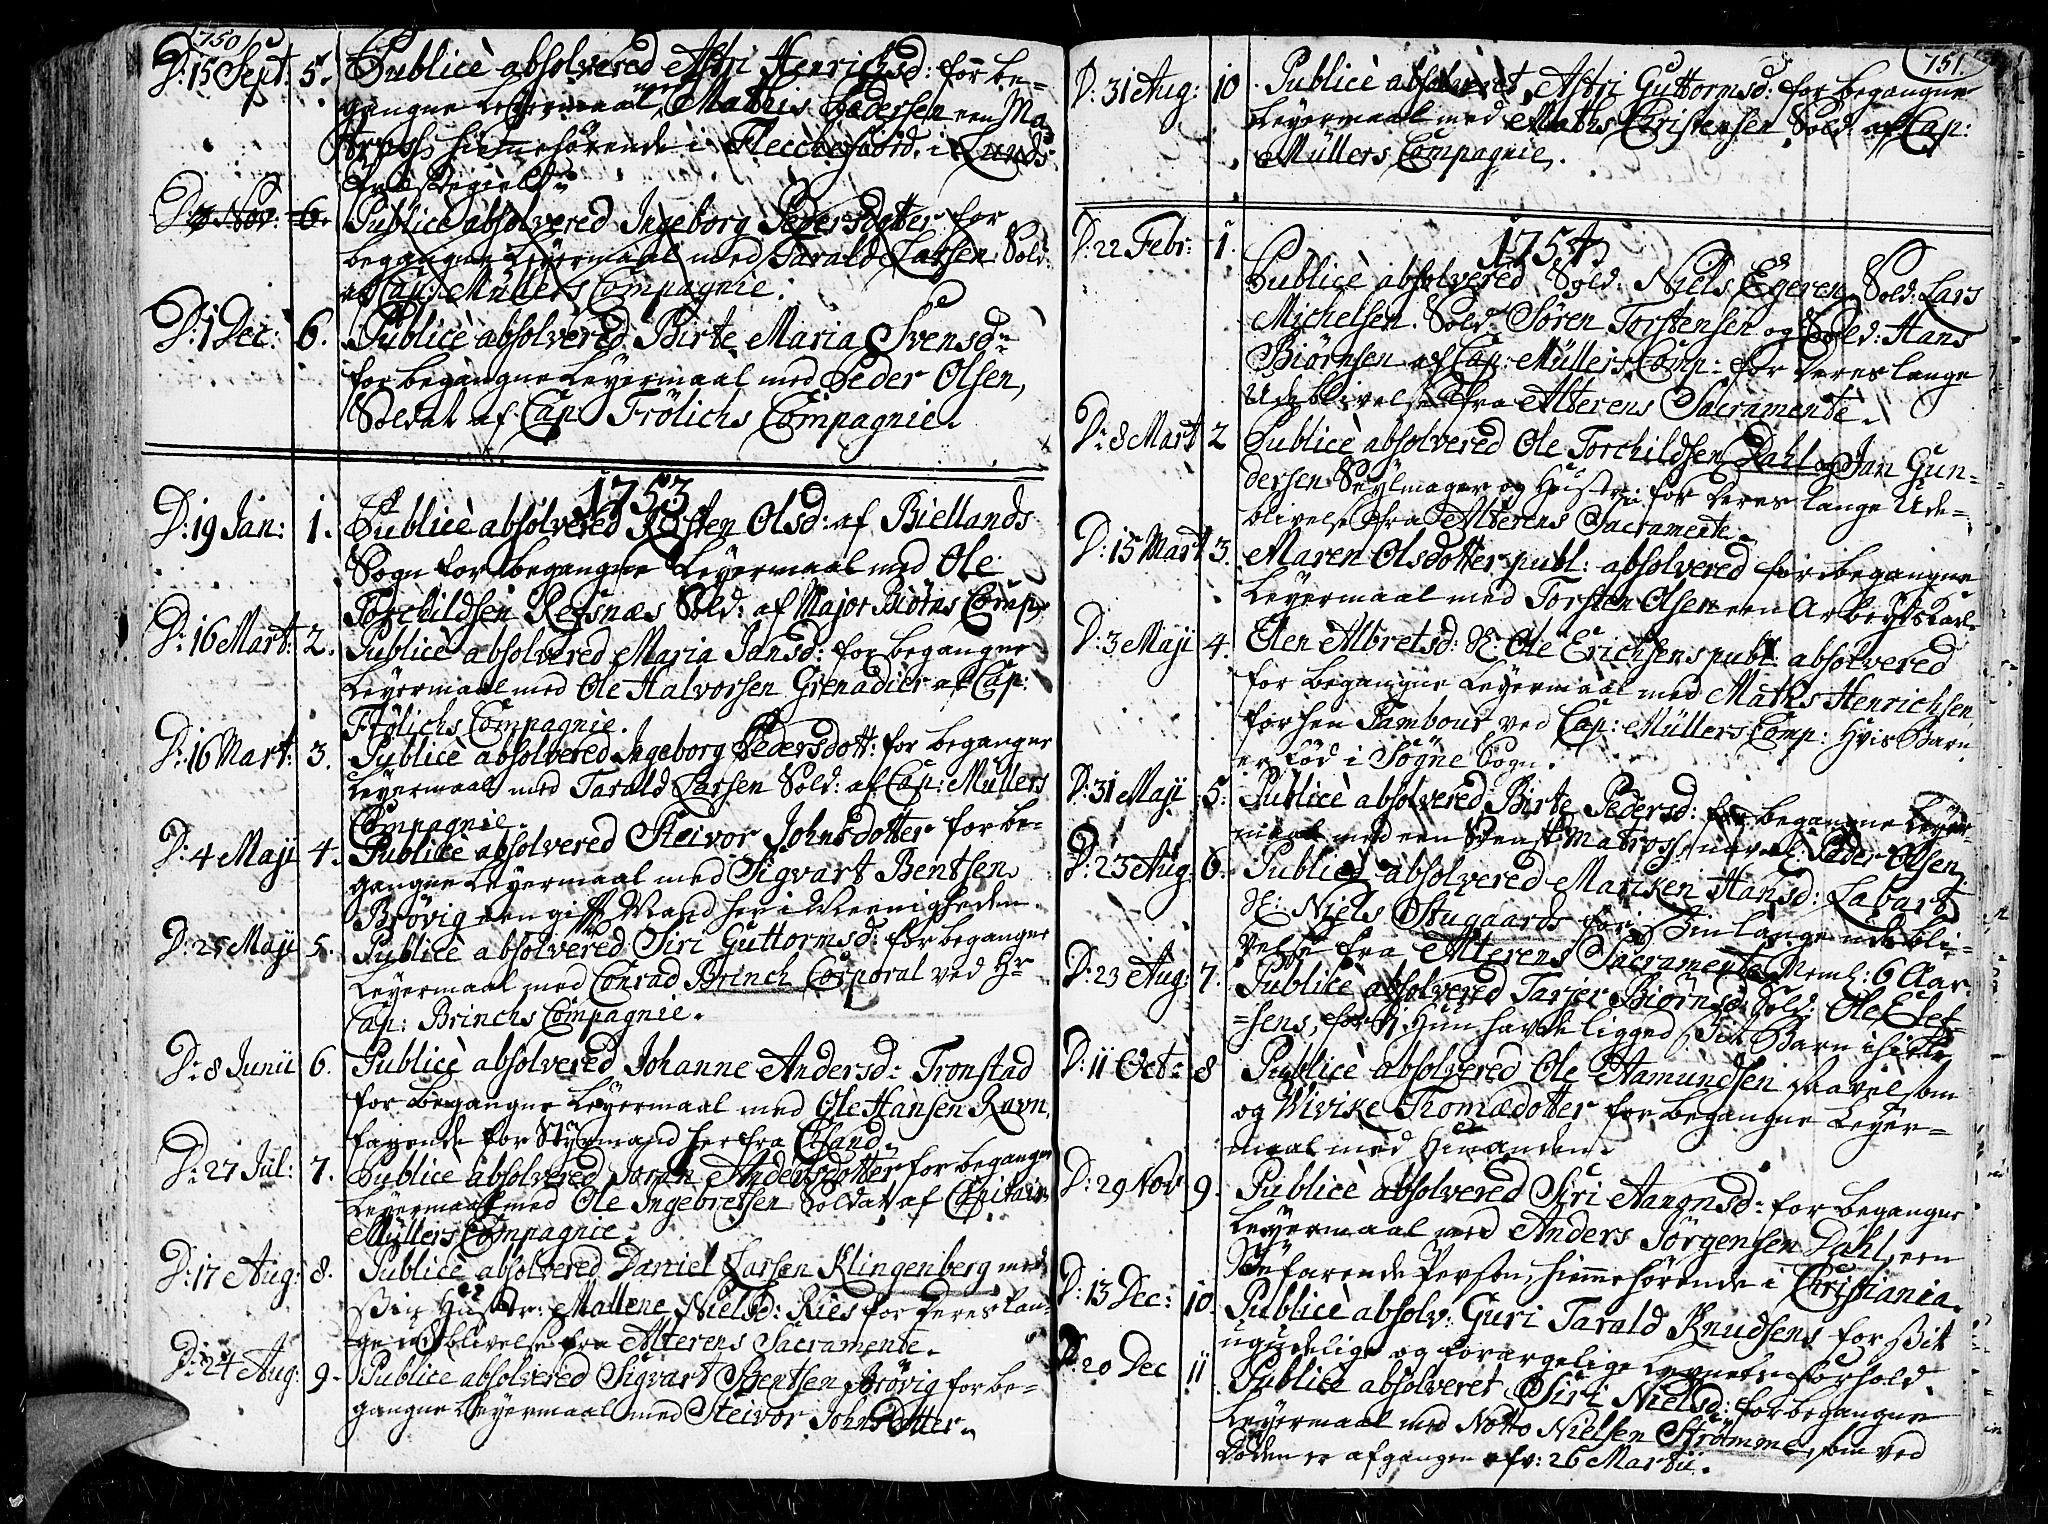 750
D: 15 Sept: 5. Publicè absolvered Astri Henrichsd: for be-
gangne Leyermaal med Mathis Pedersen een Ma
tros hiemehörende i Fleckefiord i Lunds
Præstegield.
D: Nov: 6. Publicè absolvered Ingeborg Pedersdotter for
begangne Leyermaal med Tarald Larsen Sold:
af Cap: Müllers Compagnie.
D: 1 Dec: 6. Publicè absolvered Birte Maria Svensd:
for begangne Leyermaal med Peder Olsen,
Soldat af Cap: Frölichs Compagnie.
1753
D: 19 Jan: 1. Publicè absolvered Kirsten Olsd: af Biellands
Sogn for begangne Leyermaal med Ole
Torchildsen Refsnæs Sold: af Major Biörns Comp:
D: 16 Mart: 2. Publicè absolvered Maria Jansd: for begangne
Leyermaal med Ole Halvorsen Grenadier af Cap:
Frölichs Compagnie.
D: 16 Mart: 3. Publicè absolvered Ingeborg Pedersdott: for begangne
Leyermaal med Tarald Larsen Sold: af Cap: Müllers
Compagnie.
D: 4 Maji 4. Publicè absolvered Steivor Johnsdotter for be-
gangne Leyermaal med Sigvart Bentsen
Brövig een gift Mand her i Meenigheden.
D: 25 Maji 5. Publicè absolvered Siri Guttormsd: for begangne
Leyermaal med Conrad Brinch Corporal ved Hr
Cap: Brinchs Compagnie.
D: 8 Junii 6. Publicè absolvered Johanne Andersd: Tronstad
for begangne Leyermaal med Ole Hansen Ravn,
farende for Styrmand her fra
D: 27 Jul: 7. Publicè absolvered Joren Andersdotter for begangne
Leyermaal med Ole Ingebretsen Soldat af Capitain
Müllers Compagnie.
D: 17 Aug: 8. Publicè absolvered Daniel Larsen Klingenberg med
Sin Hustr: Mallene Nielsd: Ries for deres lan-
ge udeblivelse fra Alterens Sacramente.
D: 24 Aug: 9. Publicè absolvered Sigvart Bentsen Brövig for be-
gangne Leyermaal med Steivor Johnsdotter.
751.
D: 31 Aug: 10. Publicè absolveret Astri Guttormsd: for begangne
Leyermaal med Maths Christensen Sold: af Cap:
Müllers Compagnie.
1754
D: 22 Febr: 1. Publicè absolvered Sold: Niels Egeren, Sold: Lars
Michelsen. Sold: Sören Torstensen og Sold: Hans
Biörnsen af Cap: Müllers Comp: for deres lange
Udeblivelse fra Alterens Sacramente.
D: 8 Mart 2 Publicè absolvered Ole Torchildsen Dahl og Jan Gun-
dersen Seylmager og Hustru for deres lange Ude-
blivelse fra Alterens Sacramente.
D: 15 Mart 3. Maren Olsdotter publ: absolvered for begangne
Leyermaal med Torsten Olsen een Arbeydskarl.
D: 3 Maji 4. Elen Albretsd: S: Ole Erichsens publ: absolvered
for begangne Leyermaal med Maths Henrichsen
forhen Tambour ved Cap: Müllers Comp: Hvis Barn
erföd i Sögne Sogn.
D: 31 Maji 5. Publicè absolvered Birte Pedersd: for begangne Leyer-
maal med een Svensk Matros, navnl: Peder Olsen,
D: 23 Aug: 6. Publicè absolvered Mariken Hansd: Labart
S: Niels Stugaards for Sin lange udebli-
velse fra Alterens Sacramente, Neml: 6 Aar.
D: 23 Aug: 7. Publicè absolvered Tarjer Biörnsd: Sold: Ole Elef-
sens, for hun havde ligged Sit Barn ihiele
D: 11 Oct: 8 Publicè absolvered Ole Aamundsen Navelsom
og Wivike Tromædotter for begangne Leyer-
maal med hinanden.
D: 29 Nov 9. Publicè absolvered Siri Aanonsd: for begangne
Leyermaal med Anders Jörgensen Dahl, een
Söefarende Person, hiemehörende i Christiania.
D: 13 Dec: 10. Publicè absolv: Guri Tarald Knudsens for Sit
ugudelige og forargelige Levnets forhold.
D: 20 Dec 11 Publicè absolveret Siri Nielsd: for begangne
Leyermaal med Notto Nielsen Strömme, som ved
Döden er afgangen afv: 26 Martii.